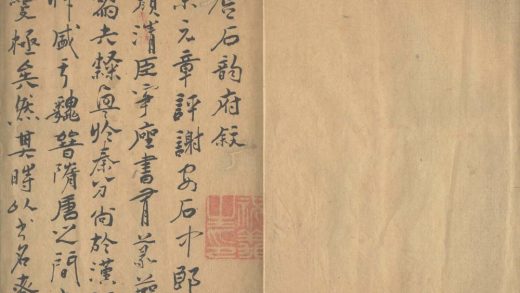 石韵府叙
元章評謝安石中郎
顏清臣爭座書有篆
隸興於秦分尚於漢
盛于魏晉隋唐之間
變極矣然其時以書名